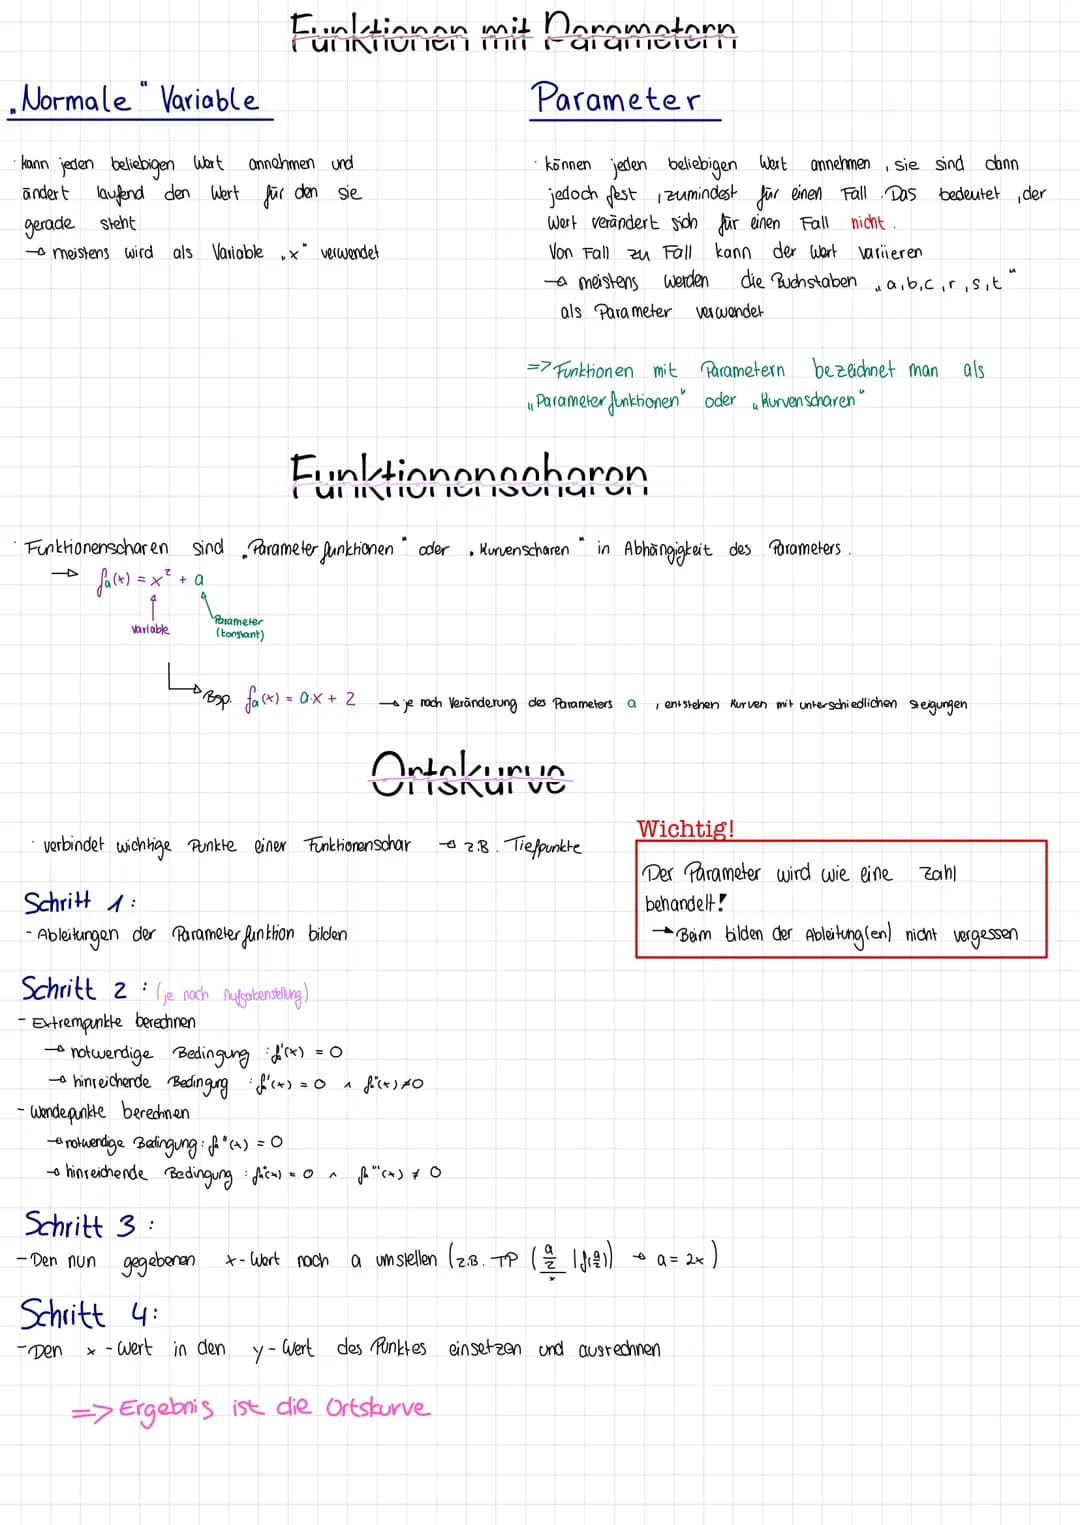 Funktionen mit Parametern
„Normale“ Variable
· kann jeden beliebigen Wert annehmen und
ändert laufend den Wert für den sie
gerade steht
→ meistens wird als Variable „x“ verwendet
Parameter
· können jeden beliebigen Wert annehmen, sie sind dann
jedoch fest, zumindest für einen Fall. Das bedeutet, der
Wert verändert sich für einen Fall nicht.
Von Fall zu Fall kann der Wert variieren
→ meistens werden die Buchstaben „a,b,c,r,s,t“
als Parameter verwendet
=> Funktionen mit Parametern bezeichnet man als
„Parameterfunktionen“ oder „Kurvenscharen“
Funktionenscharen
· Funktionenscharen sind „Parameterfunktionen“ oder „Kurvenscharen“ in Abhängigkeit des Parameters.
→ fa(x) = x² + a
Variable
Parameter
(konstant)
→ Bsp. fa(x) = a·x + 2 → je nach Veränderung des Parameters a, entstehen Kurven mit unterschiedlichen Steigungen
Ortskurve
· verbindet wichtige Punkte einer Funktionenschar → z.B. Tiefpunkte
Wichtig!
Der Parameter wird wie eine Zahl
behandelt!
→ Beim bilden der Ableitung(en) nicht vergessen
Schritt 1:
- Ableitungen der Parameterfunktion bilden
Schritt 2: (je nach Aufgabenstellung)
- Extrempunkte berechnen
→ notwendige Bedingung: fa'(x) = 0
→ hinreichende Bedingung: fa'(x) = 0 ∧ fa''(x) ≠ 0
- Wendepunkte berechnen
→ notwendige Bedingung: fa''(x) = 0
→ hinreichende Bedingung: fa''(x) = 0 ∧ fa'''(x) ≠ 0
Schritt 3:
- Den nun gegebenen x-Wert nach a umstellen (z.B. TP (a/2 | f(a/2)) → a = 2x)
x
Schritt 4:
- Den x-Wert in den y-Wert des Punktes einsetzen und ausrechnen
=> Ergebnis ist die Ortskurve